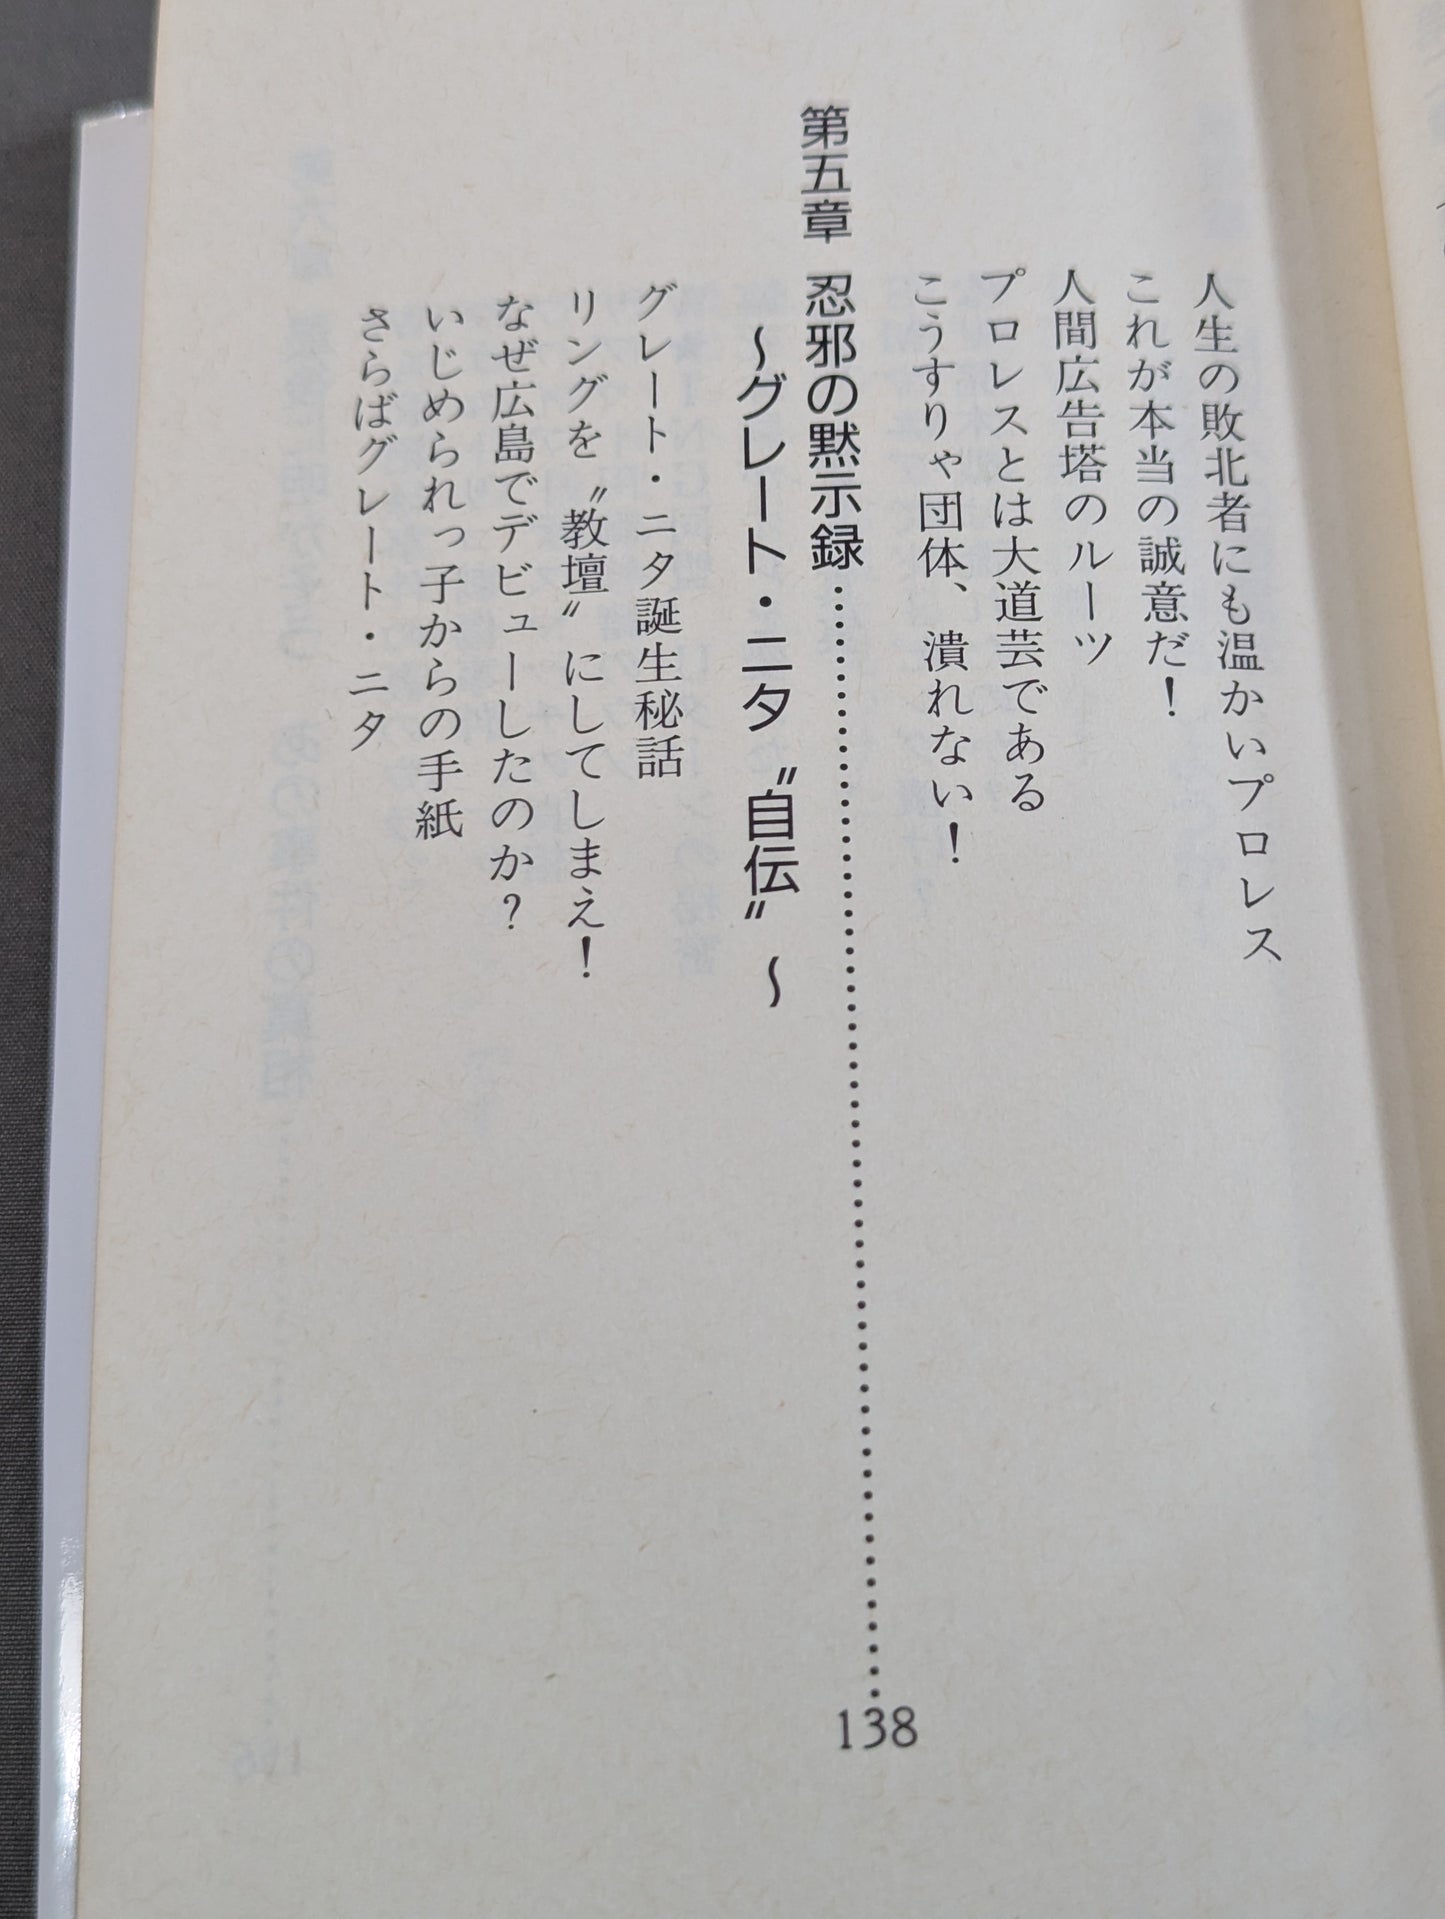 人生の敗北者にも温かいプロレス
これが本当の誠意だ！
人間広告塔のルーツ
プロレスとは大道芸である
こうすりゃ団体、潰れない！
第五章 忍邪の黙示録……………………………138
～グレート・ニタ〝自伝〟～
グレート・ニタ誕生秘話
リングを〝教壇〟にしてしまえ！
なぜ広島でデビューしたのか？
いじめられっ子からの手紙
さらばグレート・ニタ